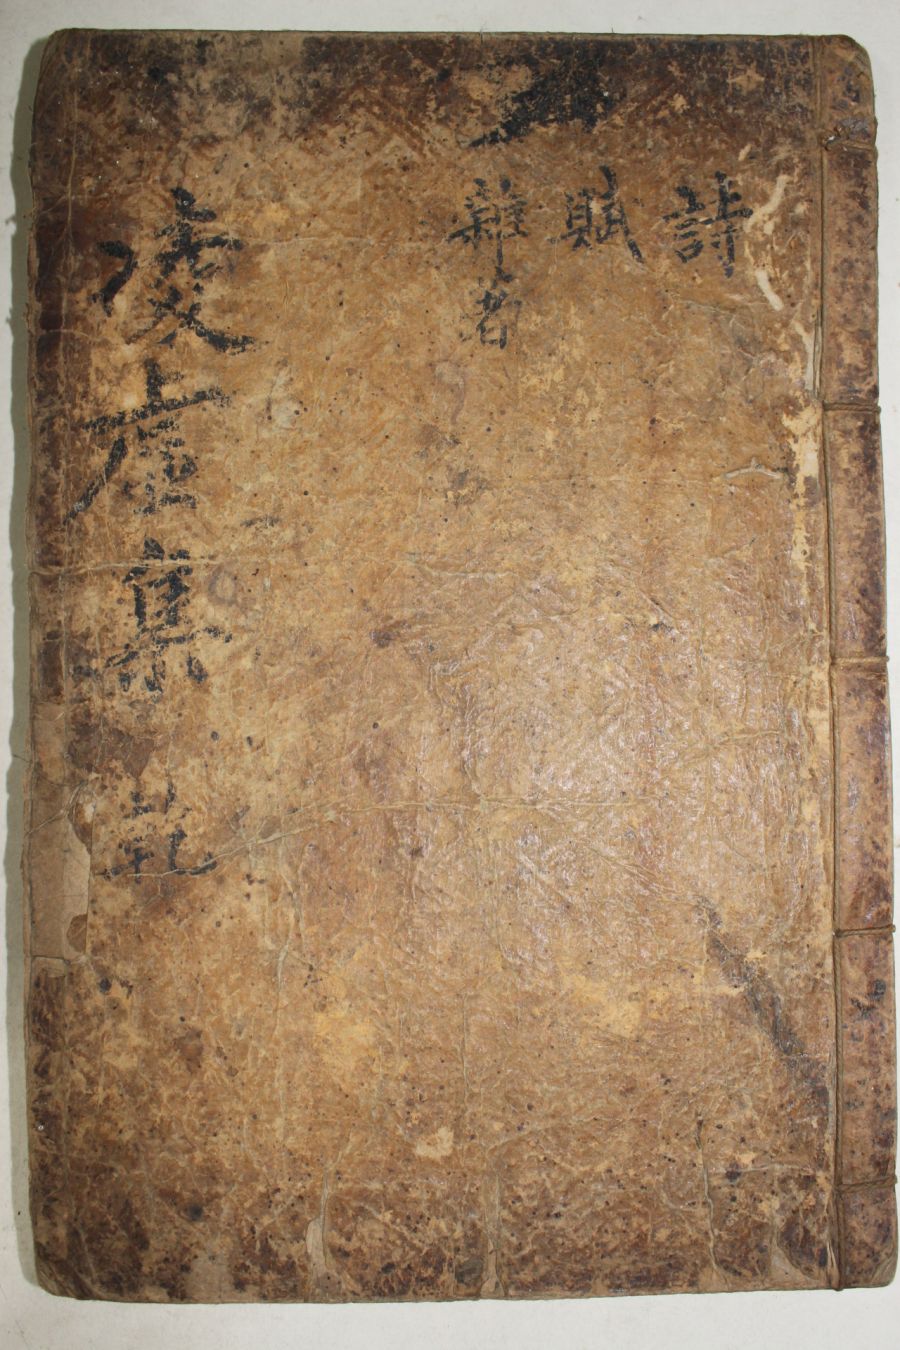 詩
賦
雜著
凌虛集